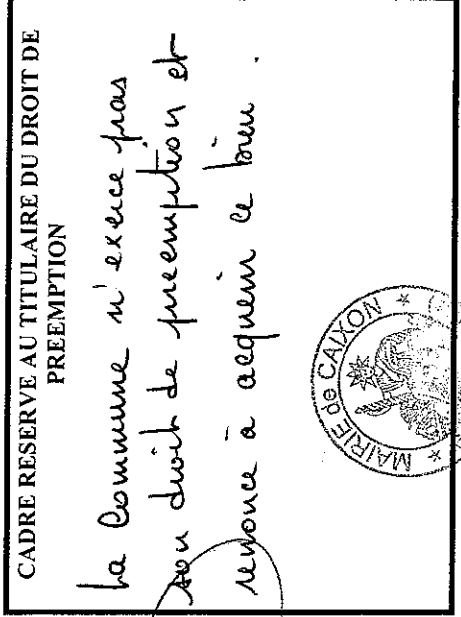 CADRE RESERVE AU TITULAIRE DU DROIT DE
PREEMPTION
La Commune n'exerce pas
son droit de preemption et
renonce à acquérir ce bien.
MAIRIE de CAIXON